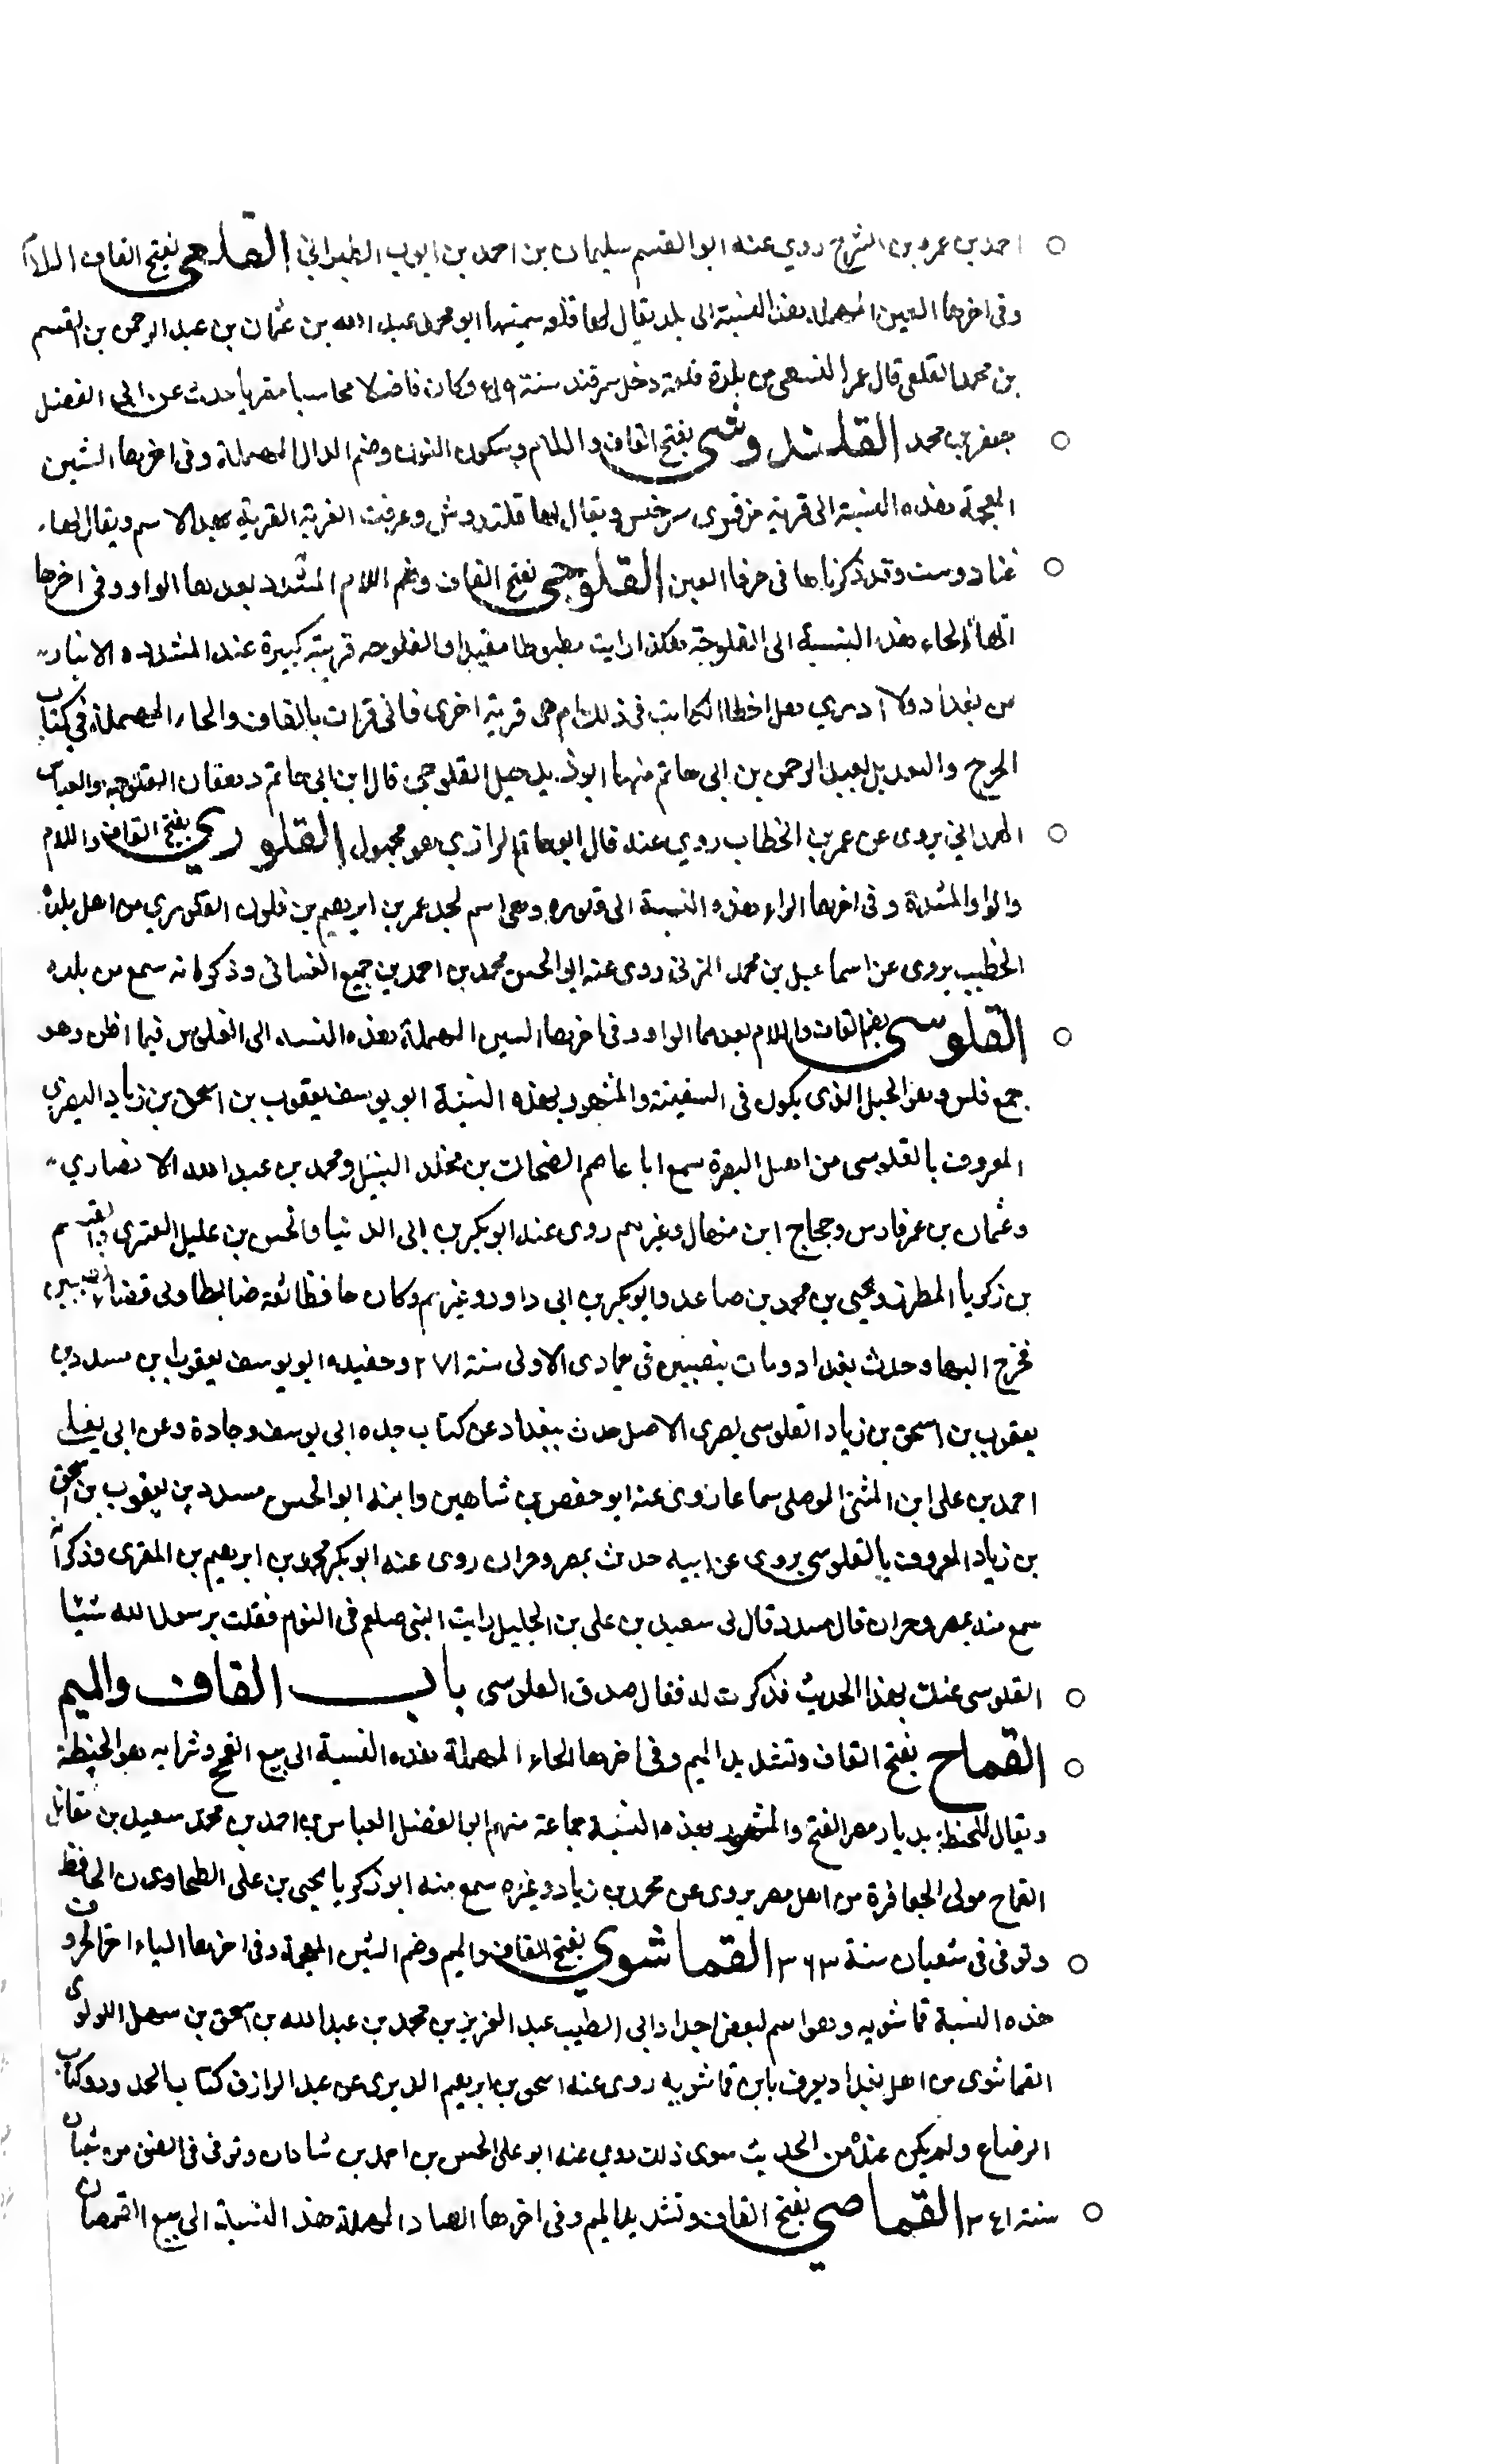 احمد بن عمرو بن السرح روي عنه ابو القسم سليمان بن احمد بن ايوب الطبراني القلعي بفتح القاف اللام
وفي اخرها العين المهملة هذه النسبة الى بلد يقال لها قلعه منها ابو محمد عبد الله بن عثمان بن عبد الرحمن بن القسم
بن محمد القلعي قال عمر النسفي من بلدة قلعة دخل سمرقند سنة ٤١٩ وكان فاضلا محاسبا مقريا حدث عن ابي الفضل
جعفر بن محمد القلندوشي بفتح القاف واللام وسكون النون وضم الدال المهملة وفي اخرها الشين
المعجمة هذه النسبة الى قرية من قرى سرخس ويقال لها قلندوش وعرفت القرية القريبة بهذا الاسم ويقال لها
غنادوست وقد ذكرناها في حرف العين القلوحي بفتح القاف وضم اللام المشدد بعدها الواو وفي اخرها
الحاء هذه النسبة الى القلوجة هكذا رايت مضبوطا مقيدا والفلوجه قرية كبيرة عند الانبار
من بغداد ولا ادري هل اخطا الكاتب في ذلك ام هي قرية اخرى فاني قرات بالقاف والحاء المهملة في كتاب
الجرح والتعديل لعبد الرحمن بن ابي حاتم منها ابو القلوحي قال ابن ابي حاتم دهقان القلوجه والعباس
الهمداني يروى عن عمر بن الخطاب روي عنه قال ابو حاتم الرازي هو مجهول القلوري بفتح القاف واللام
والواو المشددة وفي اخرها الراء هذه النسبة الى قلوره وهي اسم لجد عمر بن ابرهيم بن قلور القلوري من اهل بلدة
الخطيب يروى عن اسماعيل بن محمد المزني روى عنه ابو الحسن محمد بن احمد بن جميع الغساني وذكر انه سمع من بلده
القلوسي بضم القاف واللام بعدهما الواو وفي اخرها السين المهملة هذه النسبه الى القلوس فيما اظن وهو
جمع قلس وهو الحبل الذى يكون في السفينة والمشهور بهذه النسبة ابو يوسف يعقوب بن اسحق بن زياد البصري
المعروف بالقلوسى من اهل البصرة سمع ابا عاصم الضحاك بن مخلد النبيل ومحمد بن عبد الله الانصاري
وعثمان بن عمر فارس وحجاج ابن منهال وغيرهم روى عنه ابو بكر بن ابي الدنيا والحسن بن عليل العنزى والقسم
بن زكريا المطرز ويحيى بن محمد بن صاعد وابو بكر بن ابى داود وغيرهم وكان حافظا ثقة ضابطا ولى قضا نصيبين
فخرج اليها وحدث بغداد ومات بنصيبين في جمادى الاولى سنة ٢٧١ وحفيده ابو يوسف يعقوب بن مسدد بن
يعقوب بن اسحق بن زياد القلوسى بصرى الاصل حدث ببغداد عن كتاب جده ابى يوسف وجادة وعن ابى يعلى
احمد بن على ابن المثنى الموصلى سماعا روى عنه ابو حفص بن شاهين وابنه ابو الحسن مسدد بن يعقوب بن اسحق
بن زياد المعروف بالقلوسي يروى عن ابيه حدث بمصر وحران روى عنه ابو بكر محمد بن ابرهيم بن المقرى وذكر انه
سمع منه بمصر وحران قال مسدد قال لى سعيد بن على بن الجليل رايت النبي صلعم في النوم فقلت يرسول الله شيئا
القلوسي عنك بهذا الحديث فذكرت له فقال صدق القلوسي باب القاف والميم
القماح بفتح القاف وتشديد الميم وفي اخرها الحاء المهملة هذه النسبة الى بيع القمح وشرايه وهو الحنطة
ويقال للحنطة بديار مصر القمح والمشهور بهذه النسبة جماعة منهم ابو الفضل العباس بن احمد بن محمد سعيد بن مقاتل
القماح مولى من اهل مصر يروى عن محمد بن زياد وغيره سمع منه ابو زكريا يحيى بن على الطحاوى الحافظ
وتوفى في شعبان سنة ٣٦٣ القماشوي بفتح القاف والميم وضم الشين المعجمة وفى اخرها الياء اخر الحروف
هذه النسبة قماشويه وهو اسم لبعض اجداد ابى الطيب عبد العزيز بن محمد بن عبد الله بن اسحق بن سهل اللولوى
القماشوى من اهل بغداد يعرف بابن قماشويه روى عنه اسحق بن ابرهيم الدبرى عن عبد الرازق كتاب الحدود وكتاب
الرضاع ولم يكن عنده من الحديث سوى ذلك روى عنه ابو على الحسن بن احمد بن شادان وتوفى فى من شعبان
سنة ٣٤١ القماصي بفتح القاف وتشديد الميم وفى اخرها الصاد المهملة هذا النسبة الى بيع القمصان